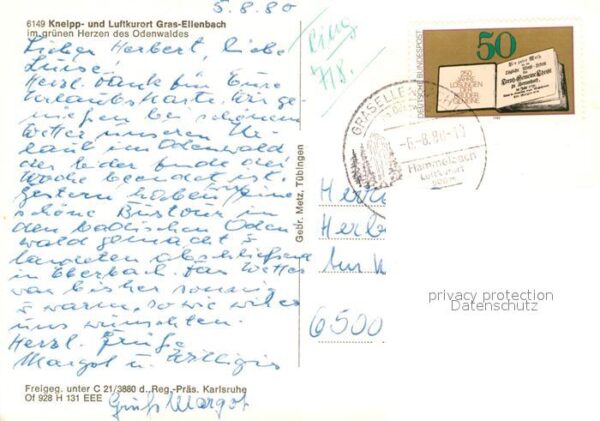 5.8.80
6149 Kneipp- und Luftkurort Gras-Ellenbach
im grünen Herzen des Odenwaldes
Lieber Herbert, liebe
Luise!
Herzl. Dank für Eure
Urlaubskarte. Wir ge-
nießen bei schönem
Wetter unseren Ur-
laub im Odenwald
der leider Ende der
Woche beendet ist.
Gestern haben wir eine
schöne Bustour in
den badischen Oden
wald gemacht u.
landeten abschließend
in Eberbach. Das Wetter
war bisher sonnig
u. warm, so wie wir es
uns wünschten.
Herzl. Grüße
Margot u. Willigis
Freigeg. unter C 21/3880 d. Reg.-Präs. Karlsruhe
Of 928 H 131 EEE
Gruß Margot
Gebr. Metz, Tübingen
7/8.
DEUTSCHE BUNDESPOST
50
250
LOSUNGEN
DER
GRASELLENBACH
-6.-8.80-10
Hammelbach
Luftkurort
Herrn
Herbe
6500
privacy protection
Datenschutz